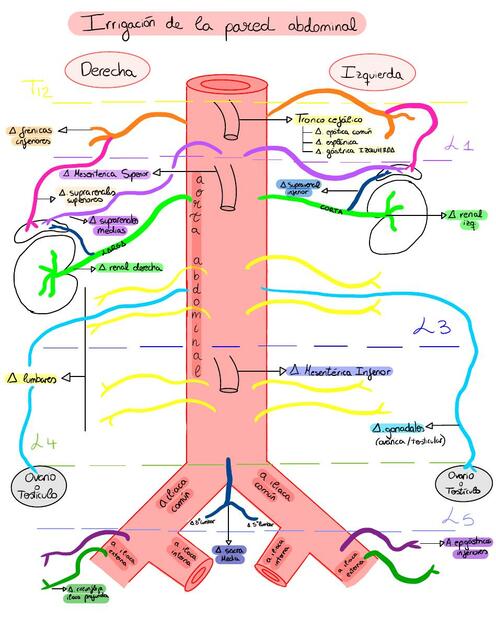 Irrigación de la pared abdominal
Derecha
Izquierda
T12
Δ frénicas
inferiores
Tronco cefálico
Δ. eptica común
Δ. esplénica
Δ. gástrica IZQUIERDA
L1
Δ Mesentérica Superior
Δ suprarrenales
superiores
Δ suprarrenal
inferior
Δ suprarrenales
medias
CORTA
Δ renal
izq.
LARGA
Δ renal derecha
aorta abdominal
L3
Δ lumbares
Δ Mesentérica Inferior
Δ. gonadales
(ovarica/testicular)
L4
Ovario
o
Testículo
Ovario
o
Testículo
Δ iliaca
común
a iliaca
común
L5
Δ 5ª lumbar
Δ 5ª lumbar
a iliaca
externa
a iliaca
interna
Δ sacra
Media
a iliaca
interna
a iliaca
externa
Δ epigástricas
inferiores
Δ circunfleja
iliaca profunda